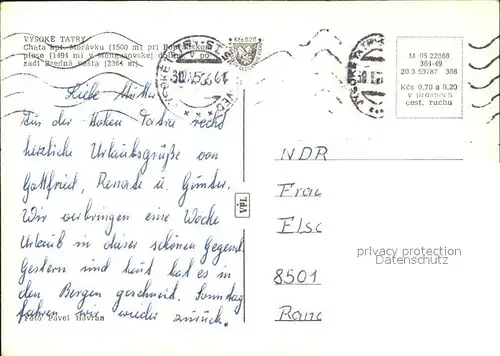 VYSOKÉ TATRY
Chata kpt. Morávku (1500 m) pri Popradskom
plese (1494 m) v Mengusovskej doline, v po-
zadí Predná Bašta (2364 m).
Kčs 0,70
M 05 22868
364-49
20 3 59787 386
Kčs 0,70 a 0,20
v prospech
cest. ruchu
Liebe Mutter
Aus der Hohen Tatra recht
herzliche Urlaubsgrüße von
Gottfried, Renate u. Günter.
Wir verbringen eine Woche
Urlaub in dieser schönen Gegend.
Gestern und heut hat es in
den Bergen geschneit. Sonntag
fahren wir wieder zurück.
Foto Pavel Havran
NDR
Frau
Else
8501
privacy protection
Datenschutz